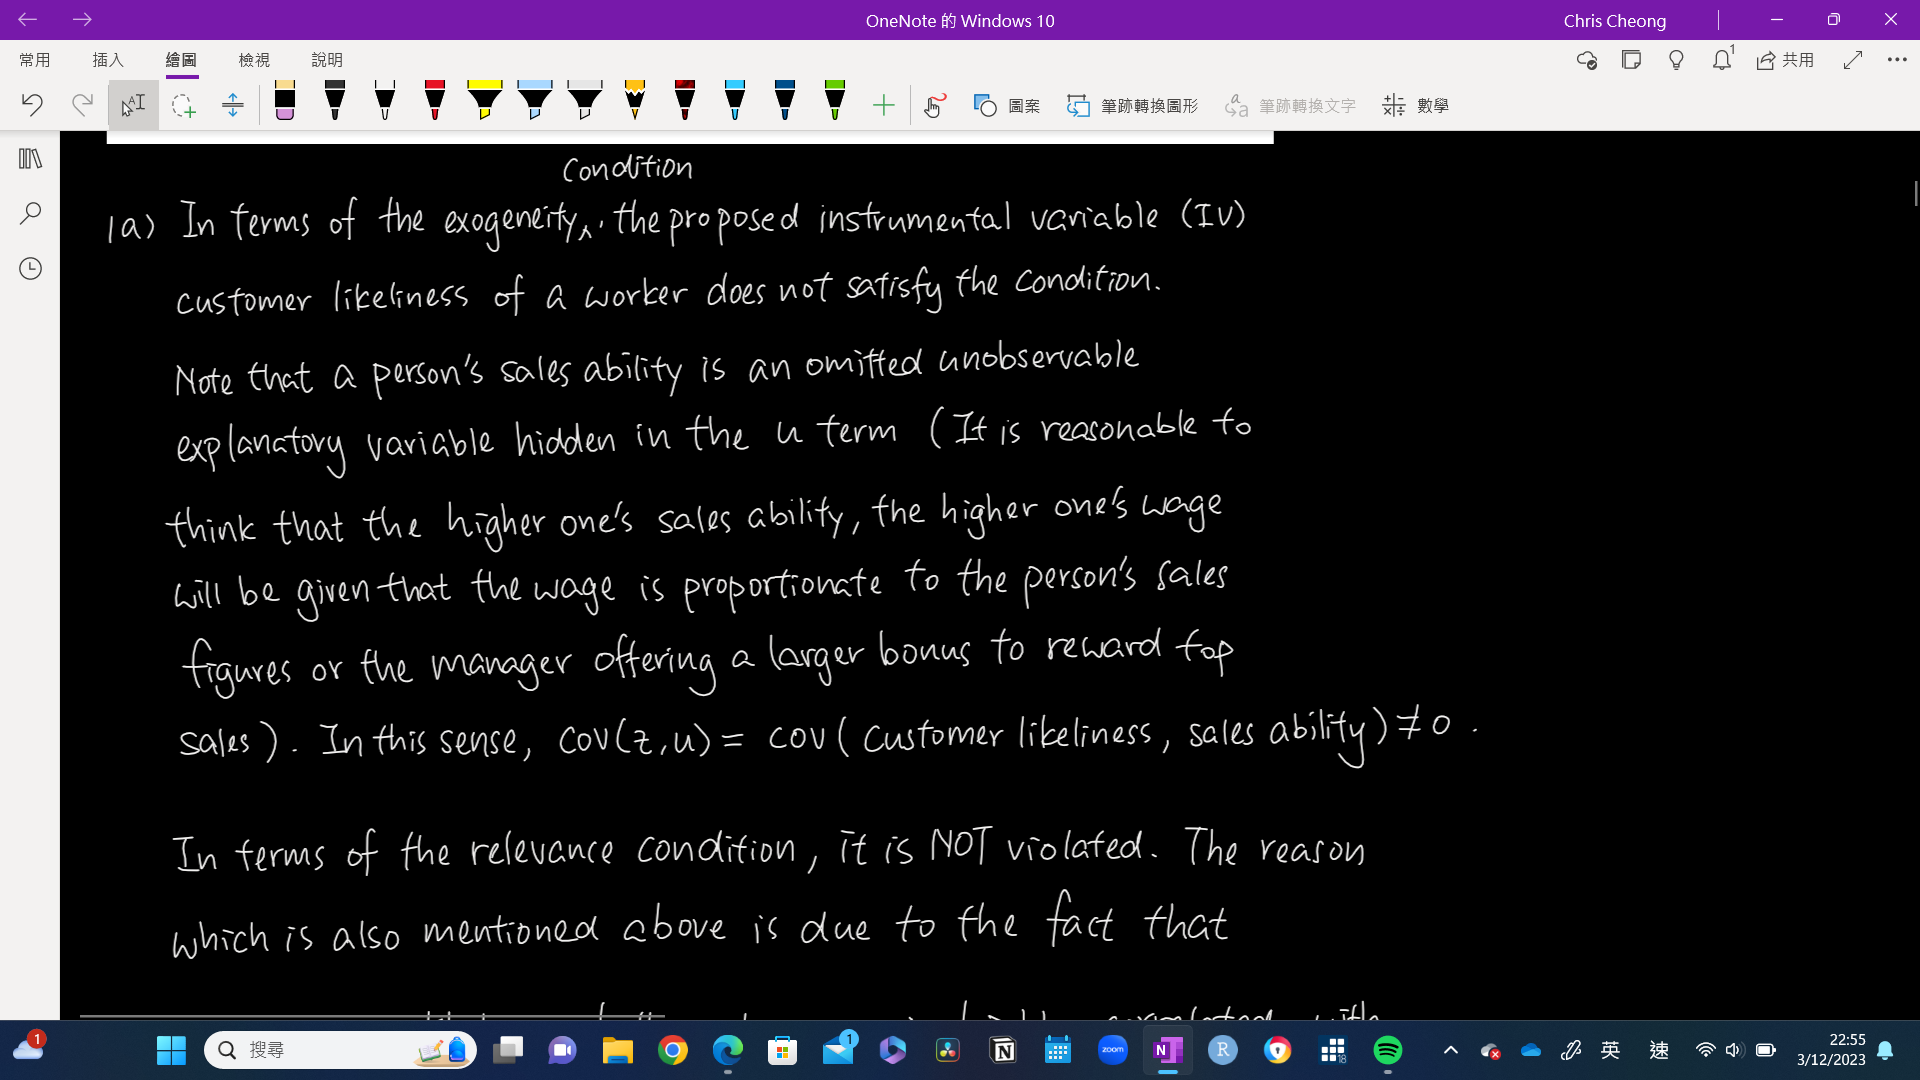 OneNote 的 Windows 10
Chris Cheong
常用 插入 繪圖 檢視 說明
1
共用
圖案 筆跡轉換圖形 筆跡轉換文字 數學
Condition
1a) In terms of the exogeneity, the proposed instrumental variable (IV)
customer likeliness of a worker does not satisfy the condition.
Note that a person's sales ability is an omitted unobservable
explanatory variable hidden in the u term (It is reasonable to
think that the higher one's sales ability, the higher one's wage
will be given that the wage is proportionate to the person's sales
figures or the manager offering a larger bonus to reward top
sales). In this sense, cov(z,u) = cov(customer likeliness, sales ability) ≠ 0.
In terms of the relevance condition, it is NOT violated. The reason
which is also mentioned above is due to the fact that
correlated with
1
搜尋
1
zoom
N
R
18
英 速
22:55
3/12/2023